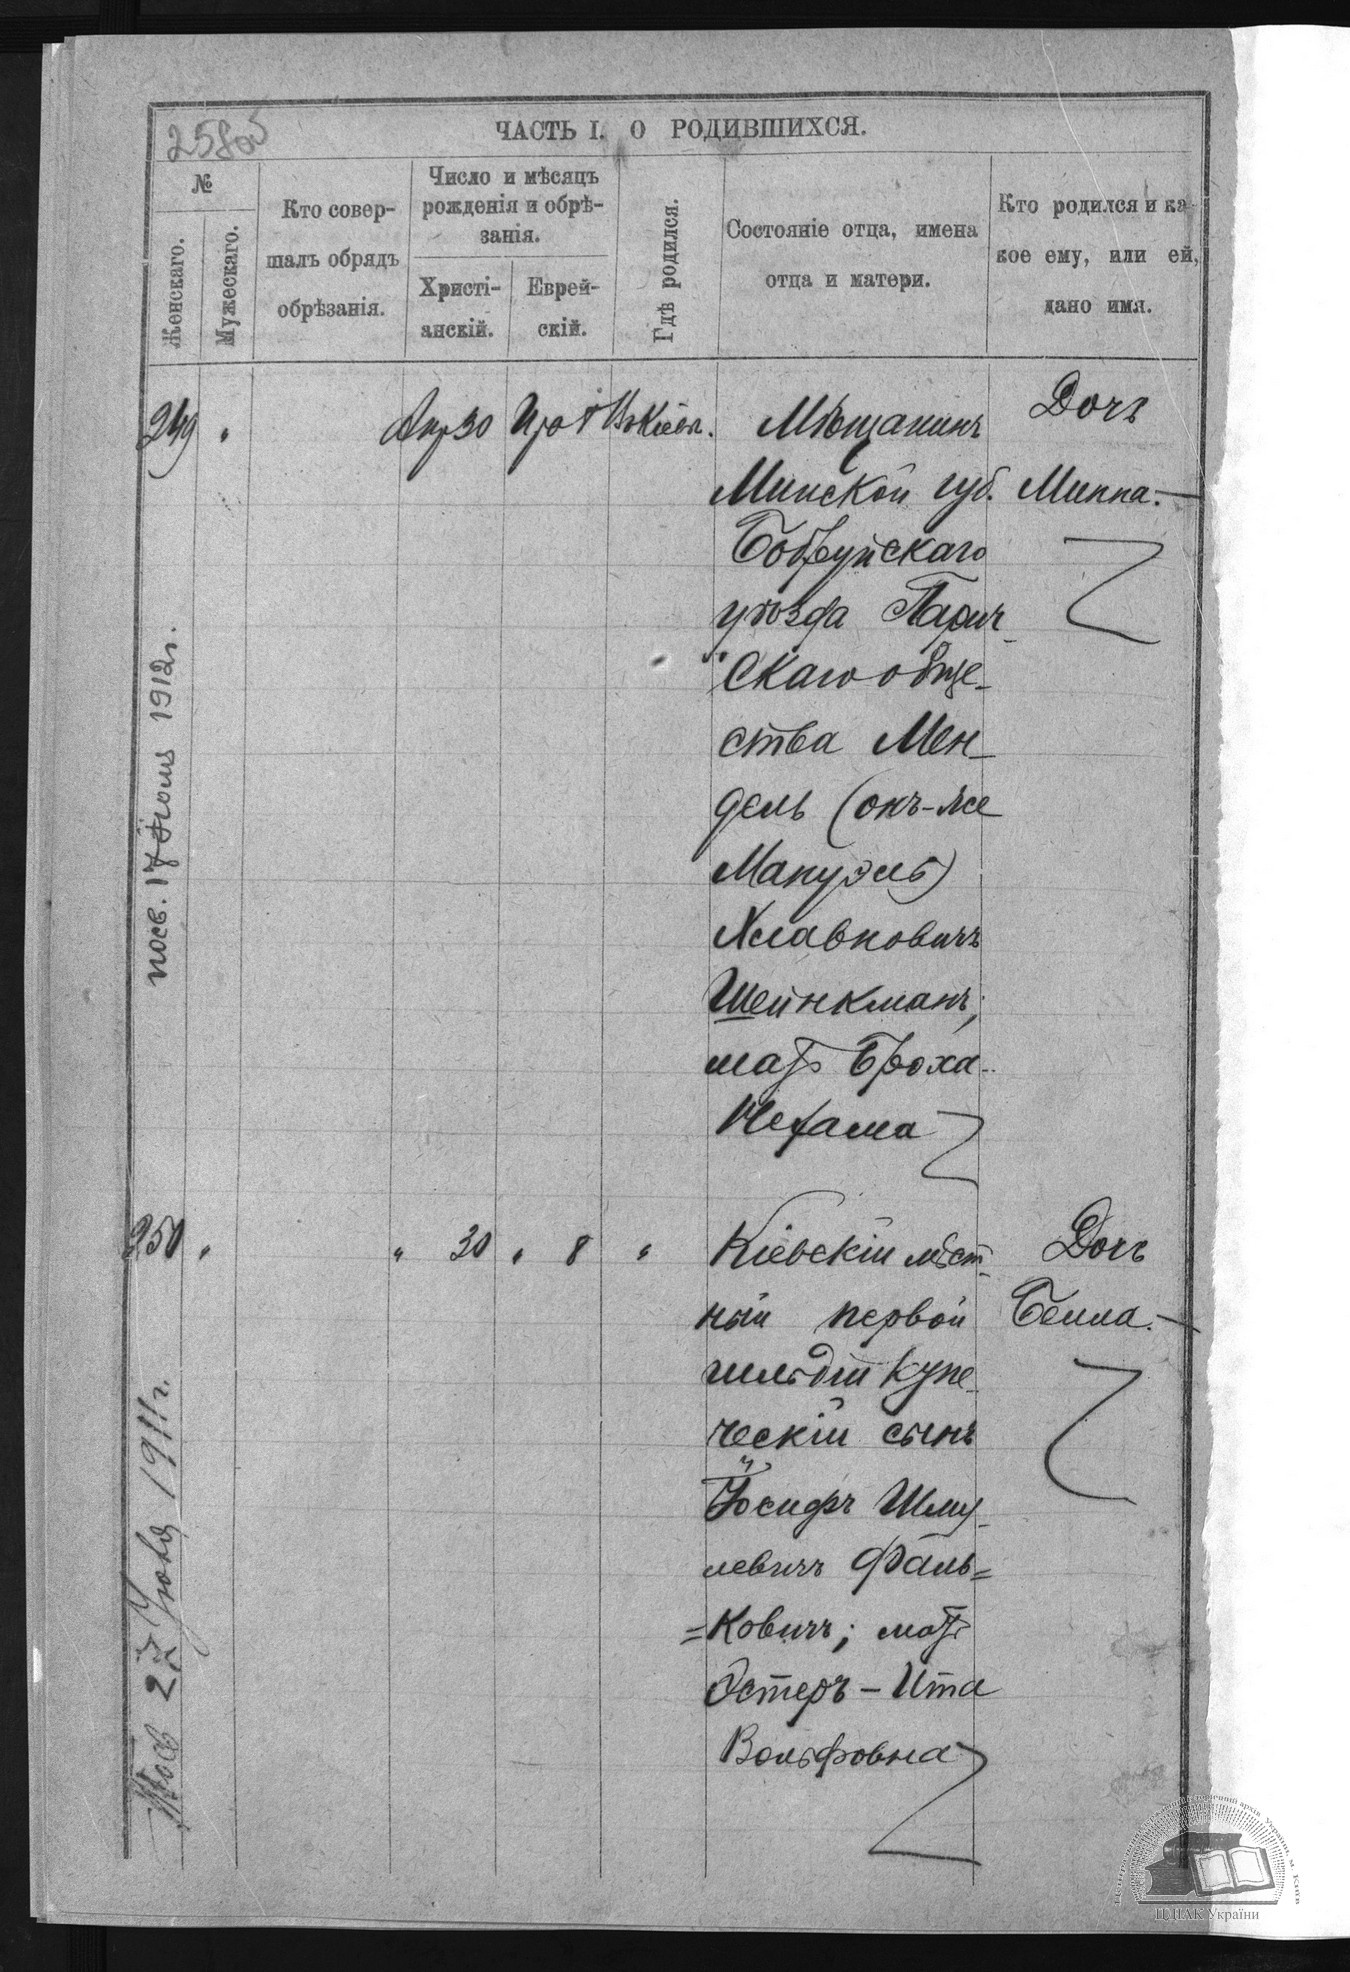 ЧАСТЬ I. О РОДИВШИХСЯ.
№
Женскаго.
Мужескаго.
Кто совер-
шалъ обрядъ
обрѣзанія.
Число и мѣсяцъ
рожденія и обрѣ-
занія.
Христі-
анскій.
Еврей-
скій.
Гдѣ родился.
Состояніе отца, имена
отца и матери.
Кто родился и ка-
кое ему, или ей,
дано имя.
249 " Апр 30 Іяр 8 Въ Кіевѣ.
Мѣщанинъ
Минской губ.
Бобруйскаго
уѣзда Парич-
скаго обще-
ства Мен-
дель (онъ-же
Мануэль)
Хлавновичъ
Шейнкманъ;
мать Броха-
Нехама
Дочь
Минна.
посв. 17 Іюля 1912г.
250 " " 30 " 8 "
Кіевскій мѣст-
ный первой
гильдіи купе-
ческій сынъ
Іосифъ Шму-
левичъ Фаль-
=ковичъ; мать
Эстеръ-Ита
Вольфовна
Дочь
Белла.
27 1911г.
ЦДІАК України